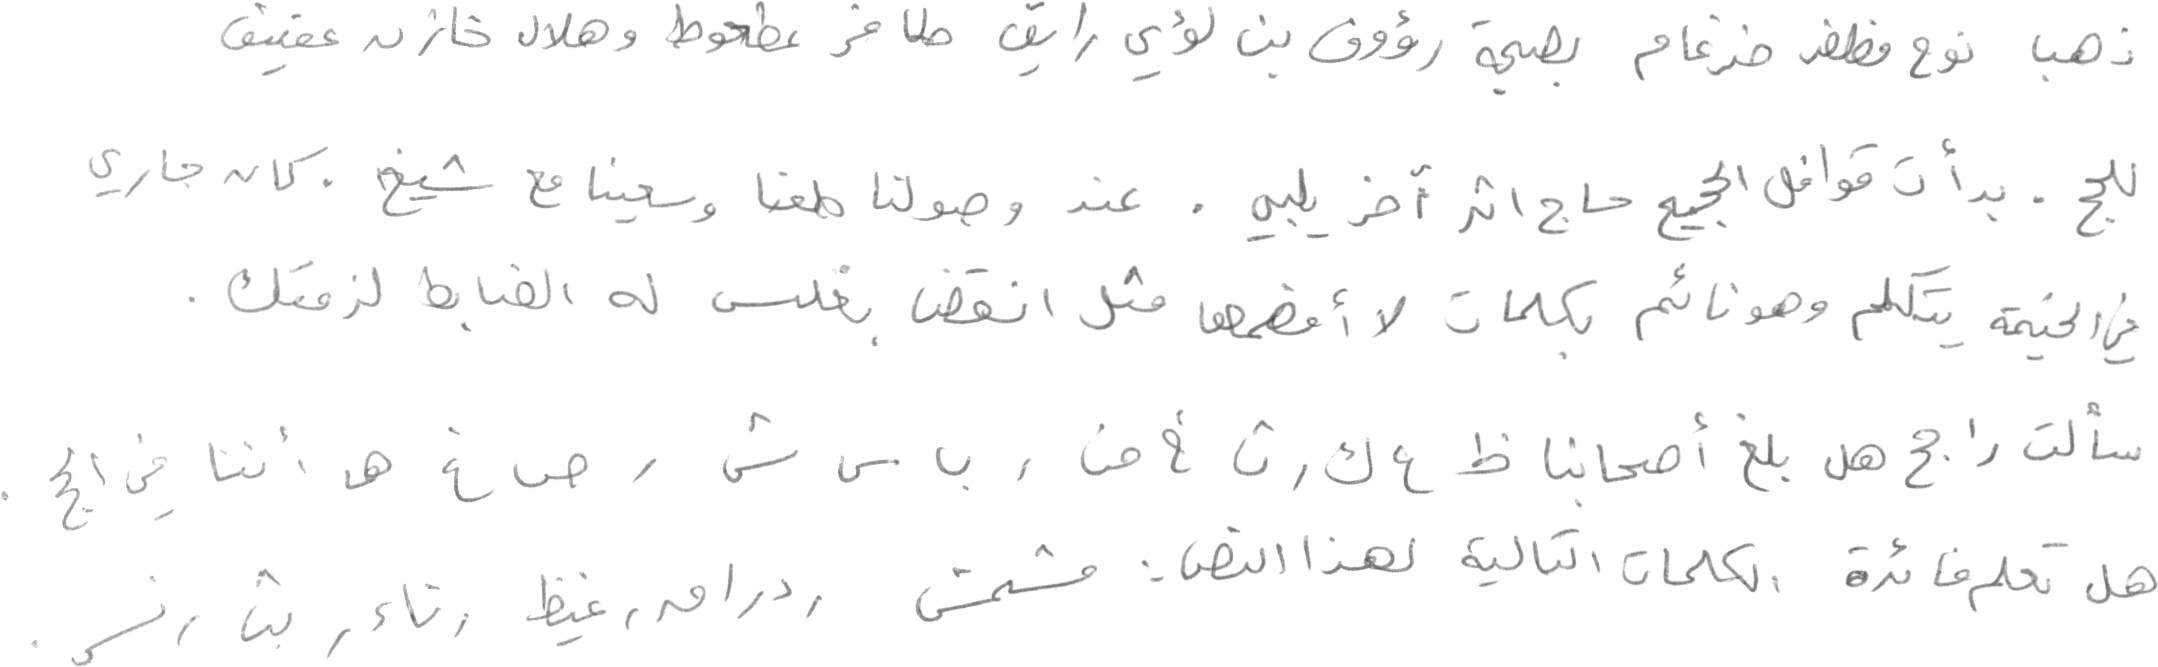 ذهبا نوح مظفر ضرغام بصحبة رؤوف بن لؤي رايق ظافر عطعوط وهلال خازن عفيف
للحج . بدأت قوافل الحجيج حاج اثر آخر يلبي . عند وصولنا طفنا وسعينا مع شيخ . كان جاري
في الخيمة يتكلم وهو نائم بكلمات لا أفهمها مثل انقض بغلس له الضابط لزمتك .
سألت راجح هل بلغ أصحابنا ظ ع ك ، ث غ ض ، ب س ش ، ص غ هـ أننا في الحج .
هل تعلم فائدة الكلمات التالية لهذا النص : مشمش ، دراق ، غيظ ، تاء ، بث ، نسر .